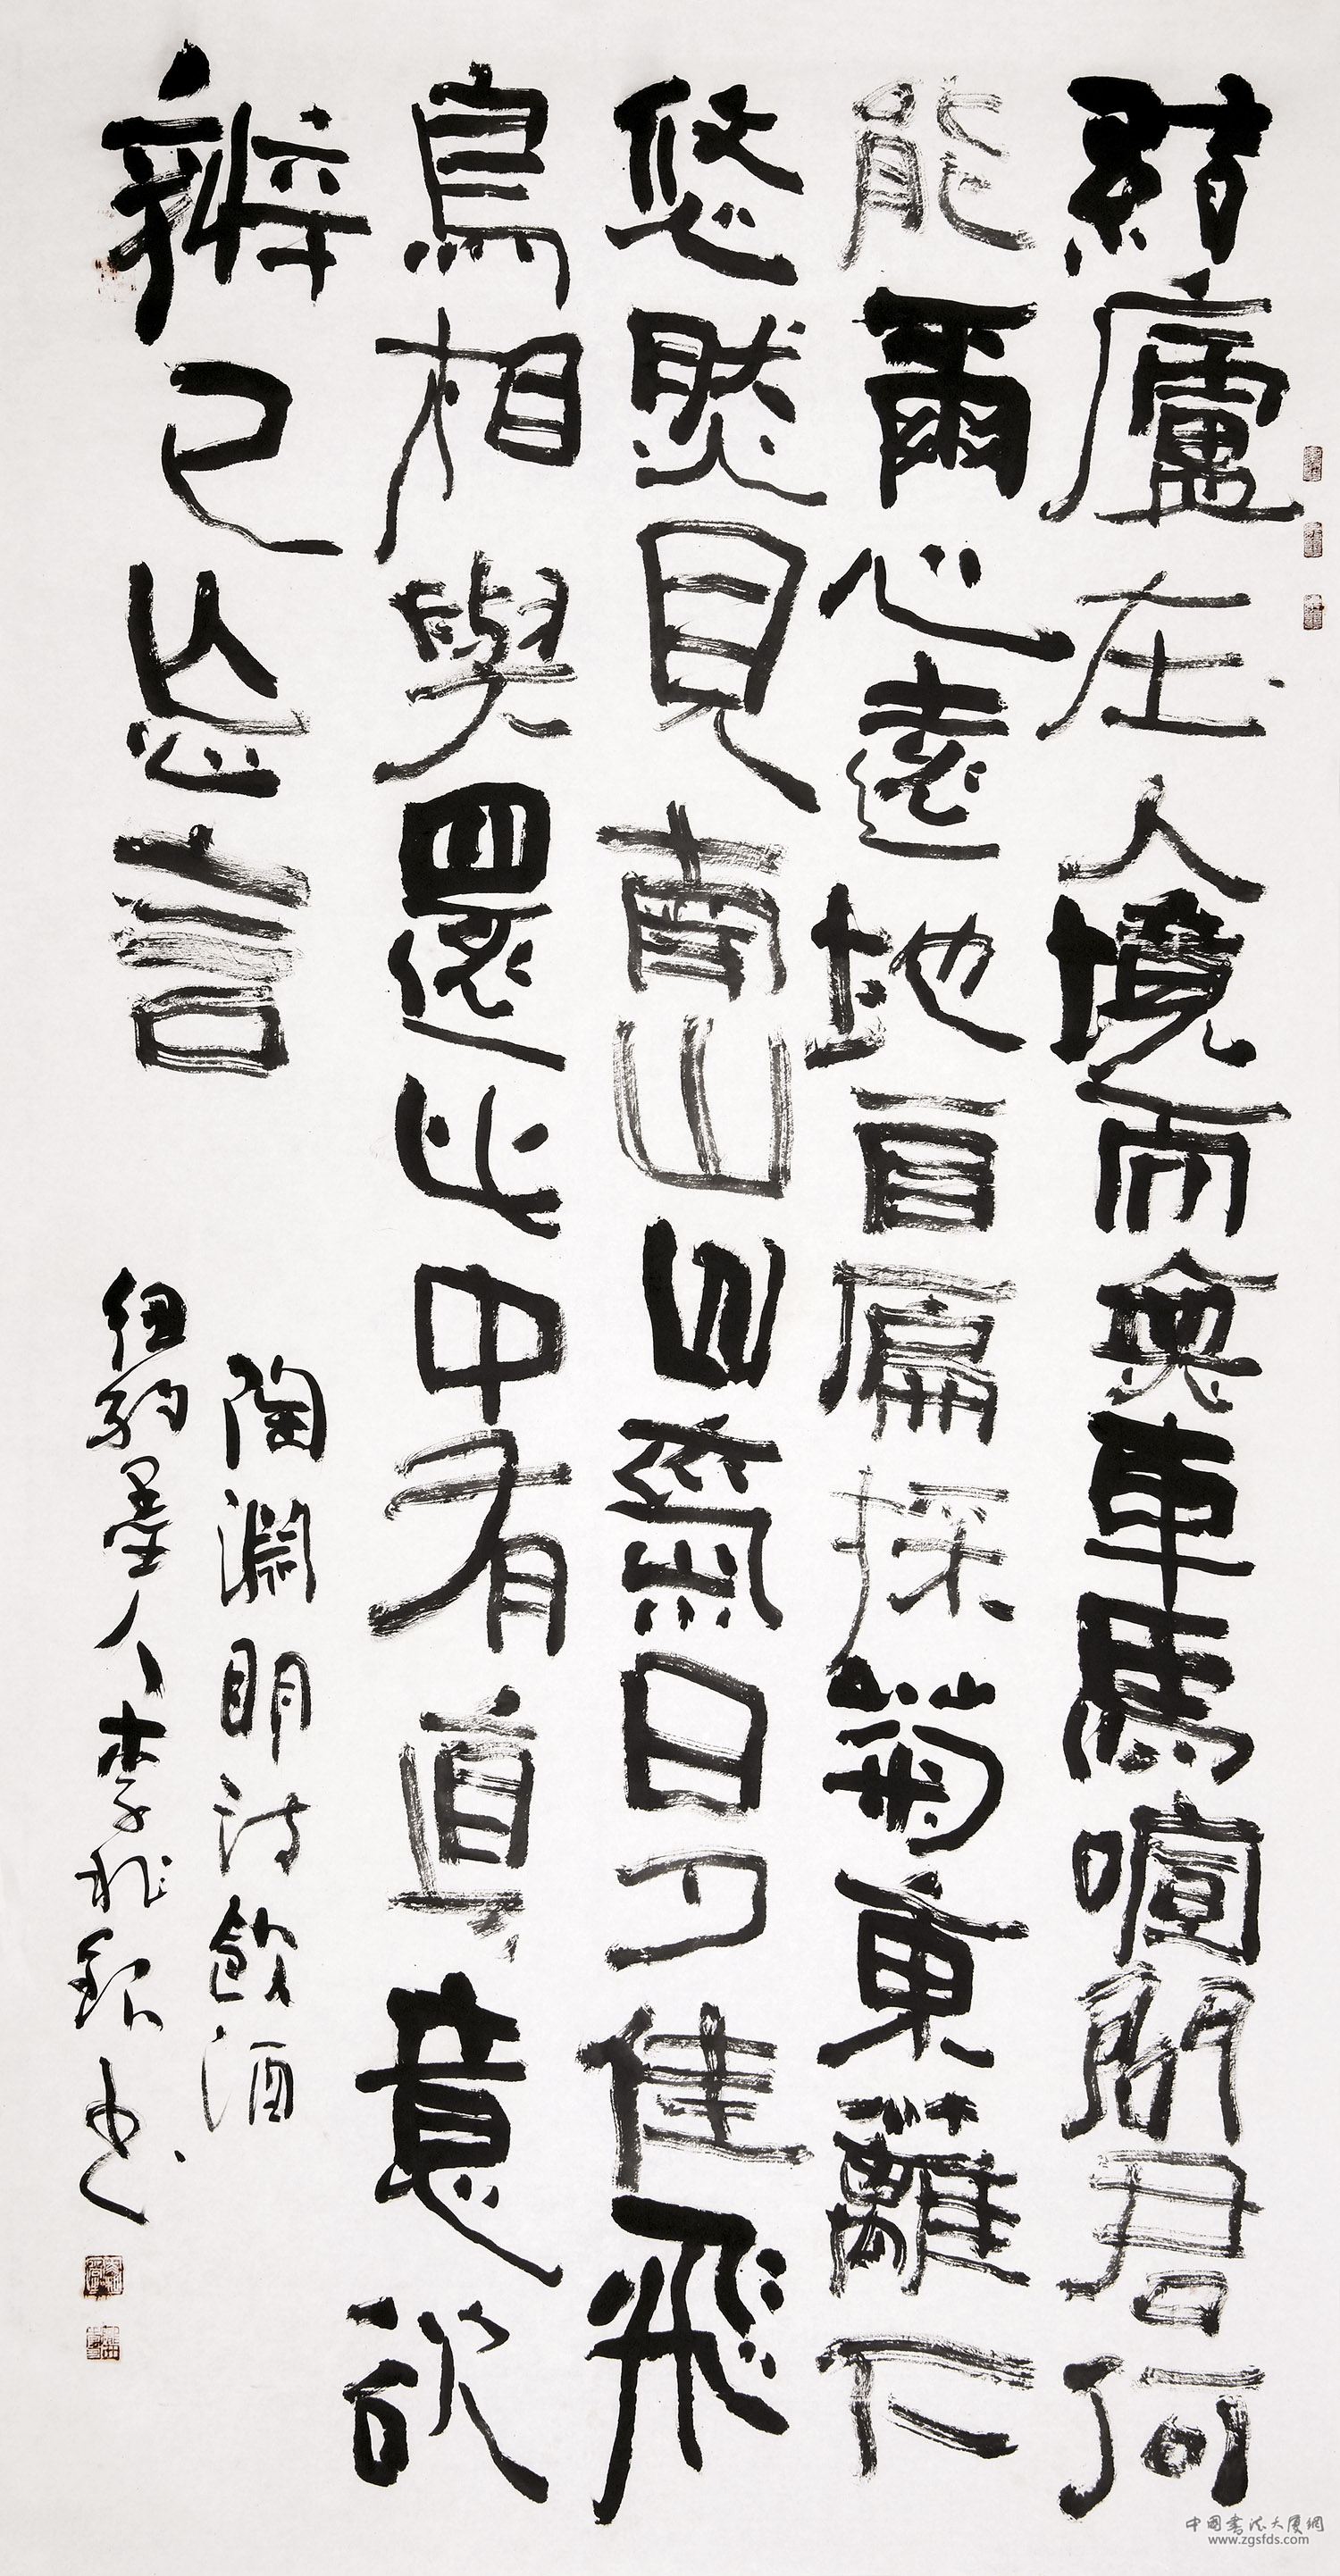 結廬在人境而無車馬喧問君何
能爾心遠地自偏採菊東籬下
悠然見南山山氣日夕佳飛
鳥相與還此中有真意欲
辨已忘言
陶淵明詩飲酒
紐約墨人李兆銀书
中国書法大厦網
www.zgsfds.com